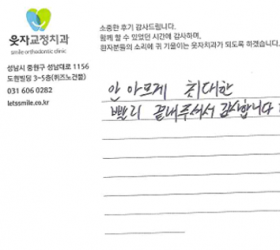 웃자교정치과
smile orthodontic clinic
성남시 중원구 성남대로 1156
도원빌딩 3~5층(퀴즈노건물)
031 606 0282
letssmile.co.kr
소중한 후기 감사드립니다.
함께 할 수 있었던 시간에 감사하며,
환자분들의 소리에 귀 기울이는 웃자치과가 되도록 하겠습니다.
안 아프게 최대한
빨리 끝내주셔서 감사합니다